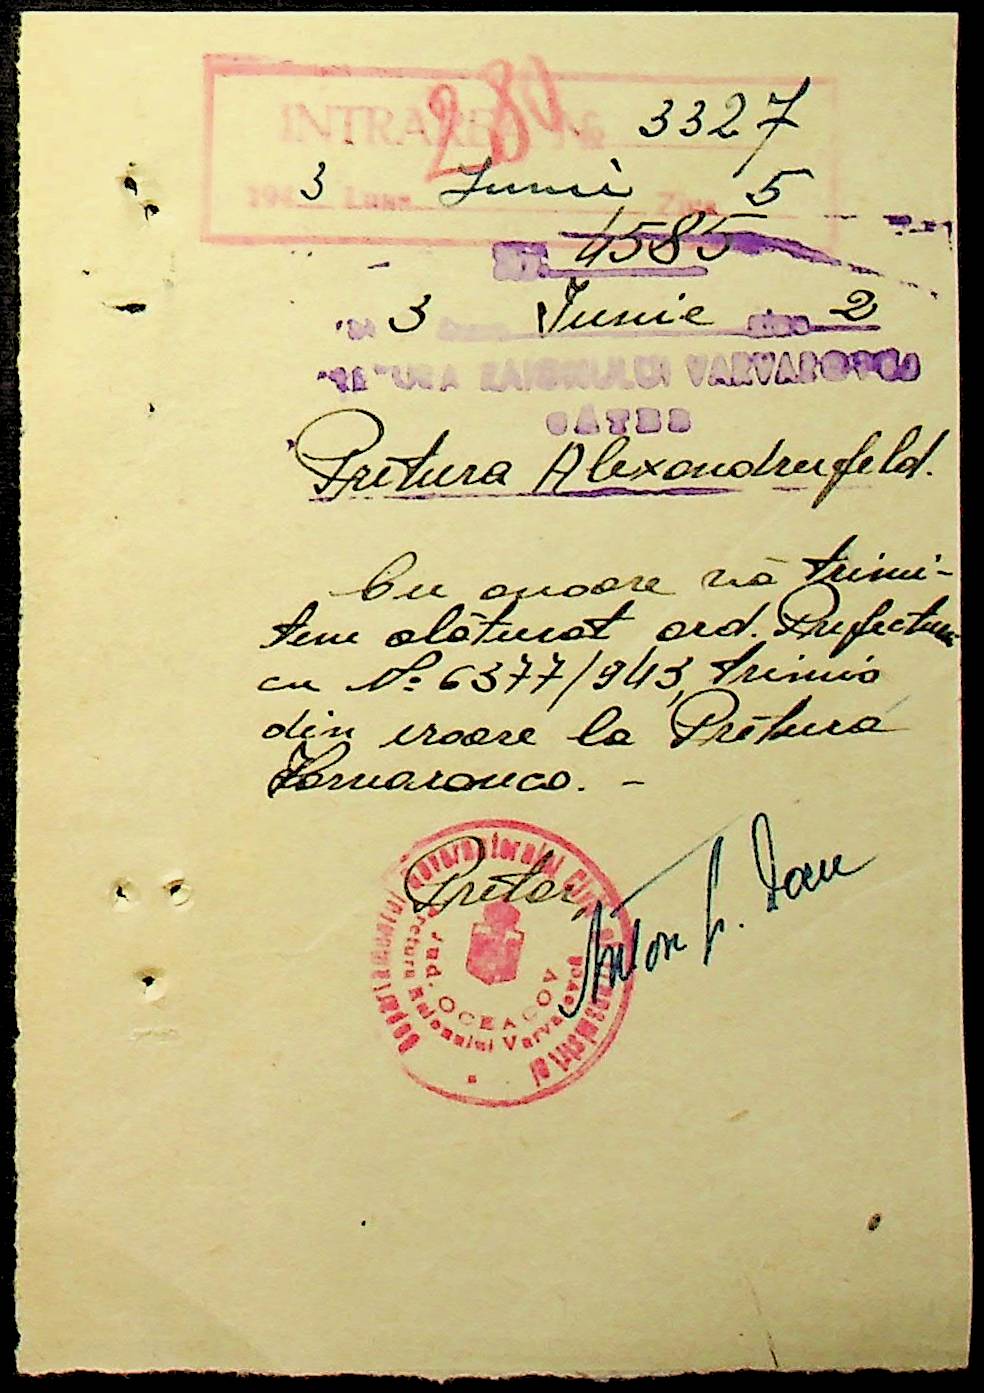 INTRAREA № 3327
280
1943 Luna Iunie Ziua 5
Nr. 4585
194 3 Luna Iunie ziua 2
PRETURA RAIONULUI VARVAROVCA
CĂTRE
Pretura Alexandrufeld.
Cu onoare vă trimi-
tem alăturat ord. Prefecturii
cu No 6377/943, trimis
din eroare la Pretura
Varvarovca. –
Pretor,
Anton
Guvernatorul Civil al Transnistriei
Jud. OCEACOV
Pretura Raionului Varvarovca